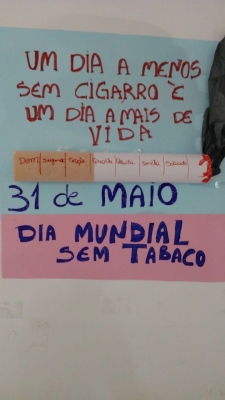 UM DIA A MENOS
SEM CIGARRO É
UM DIA A MAIS DE
VIDA
Segunda Terça Quarta Quinta Sexta Sábado
31 de MAIO
DIA MUNDIAL
SEM TABACO